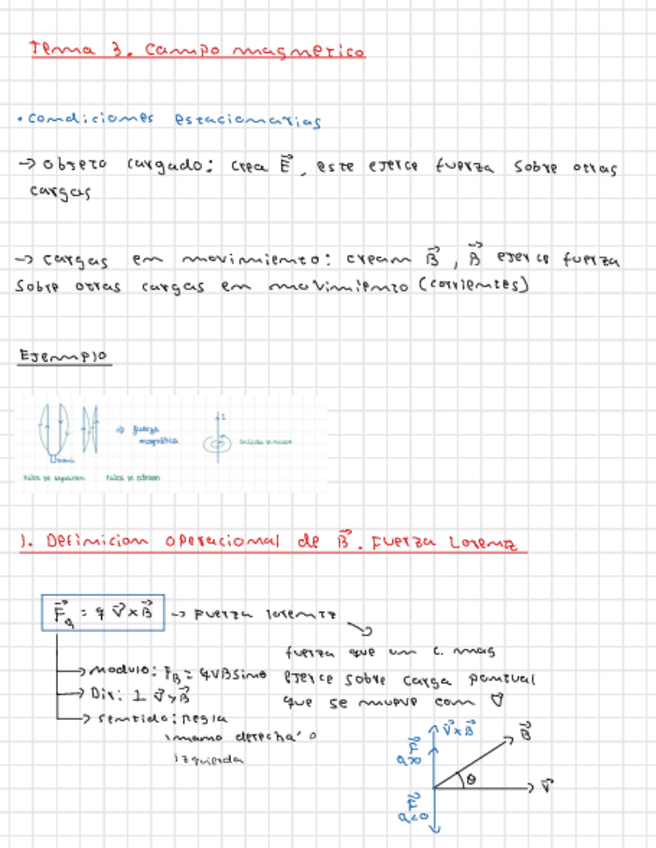 Tema 3. Campo magnetico
• condiciones estacionarias
→ objeto cargado: crea E⃗, este ejerce fuerza sobre otras
cargas
→ cargas en movimiento: crean B⃗, B⃗ ejerce fuerza
sobre otras cargas en movimiento (corrientes)
Ejemplo
⇒ fuerza
magnética
I
hilos se separan
hilos se atraen
brújula se mueve
1. Definicion operacional de B⃗. Fuerza Lorentz
F⃗ = q v⃗ × B⃗ → Fuerza lorentz
fuerza que un c. mag
ejerce sobre carga puntual
que se mueve con v⃗
→ Modulo: F_B = qvB sinθ
→ Dir: ⊥ v⃗ y B⃗
→ sentido: regla
'mano derecha' o
izquierda
v⃗ × B⃗
B⃗
θ
v⃗
q>0
q<0